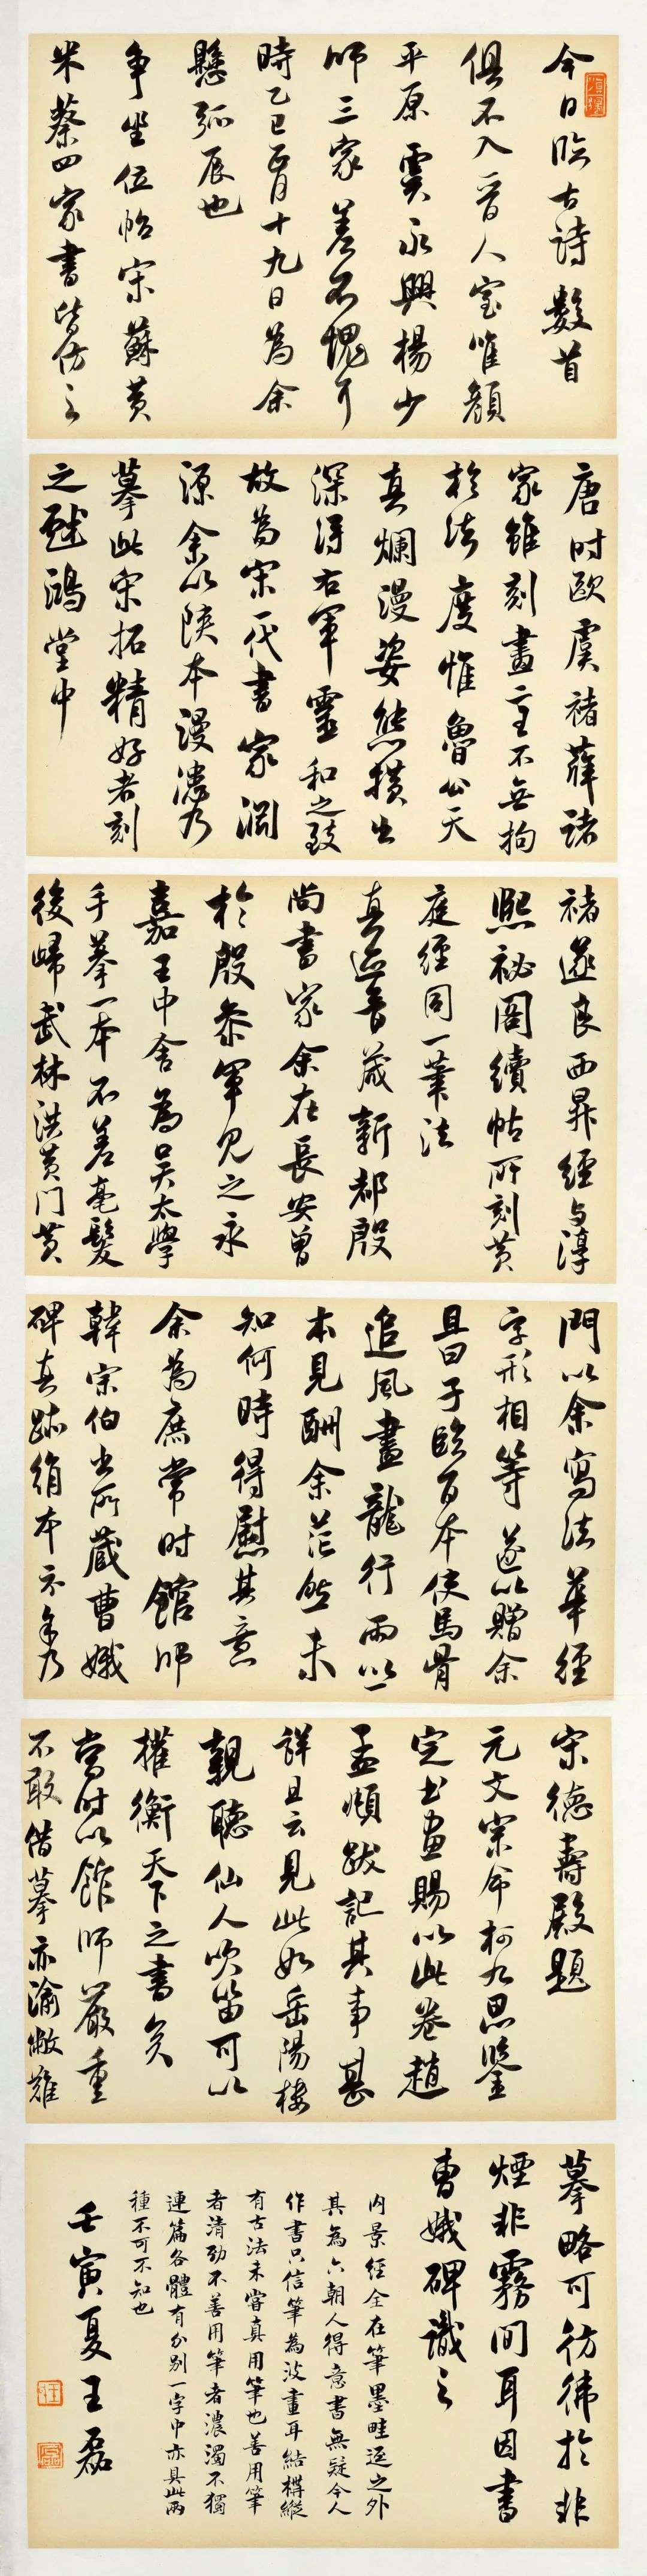 今日临古诗数首
俱不入晋人室唯颜
平原虞永兴杨少
师三家差不愧耳
時乙巳四月十九日為余
懸弧辰也
争坐位帖宋蘇黄
米蔡四家書皆仿之
唐时欧虞褚薛诸
家雖刻畫二王不無拘
於法度惟魯公天
真爛漫姿態横出
深得右軍靈和之致
故為宋一代書家淵
源余以陕本漫漶乃
摹此宋拓精好者刻
之戲鴻堂中
褚遂良西昇經与淳
熙祕阁續帖所刻黄
庭經同一筆法
真迹昔藏新都殷
尚書家余在長安曾
於殷参軍见之永
嘉王中舍為吴太學
手摹一本不差毫髮
後歸武林洪黄门黄
門以余寫法華經
字形相等遂以贈余
且曰子臨百本使馬骨
追風畫龍行雨以一
本見酬余茫然未
知何時得慰其意
余為庶常时館師
韓宗伯出所藏曹娥
碑真跡绢本示余乃
宋德壽殿題
元文宗命柯九思鑒
定书画賜以此卷趙
孟頫跋記其事甚
詳且云見此如岳陽樓
親聽仙人吹笛可以
權衡天下之書矣
當时以館師嚴重
不敢借摹亦渝敝難
摹略可彷彿於非
煙非霧間耳因書
曹娥碑識之
内景經全在筆墨畦逕之外
其為六朝人得意書無疑今人
作書只信筆為波畫耳結構縱
有古法未嘗真用筆也善用筆
者清勁不善用筆者濃濁不獨
連篇各體有分别一字中亦具此兩
種不可不知也
壬寅夏王磊